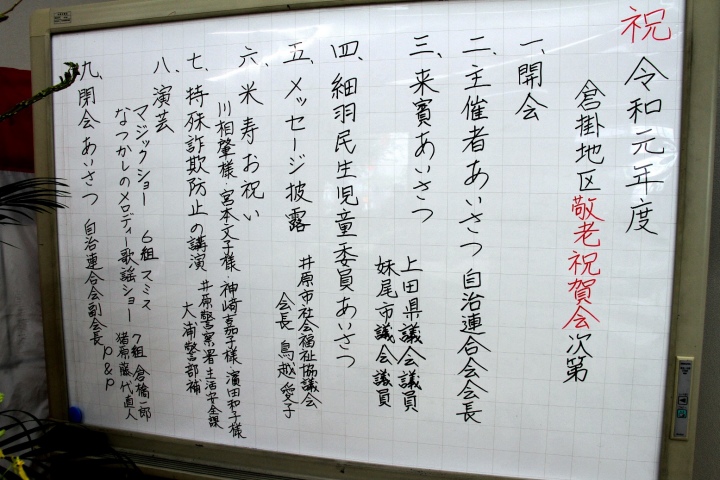 祝 令和元年度
倉掛地区敬老祝賀会次第
一、開会
二、主催者あいさつ 自治連合会会長
三、来賓あいさつ 上田県議会議員
妹尾市議会議員
四、細羽民生児童委員あいさつ
五、メッセージ披露 井原市社会福祉協議会
会長 鳥越愛子
六、米寿お祝い
川相肇様・宮本文子様・神崎嘉子様・濱田和子様
七、特殊詐欺防止の講演 井原警察署生活安全課
大浦警部補
八、演芸
マジックショー 6組スミス 7組倉橋一郎
なつかしのメロディー歌謡ショー 猪原藤代直人
P&P
九、閉会あいさつ 自治連合会副会長